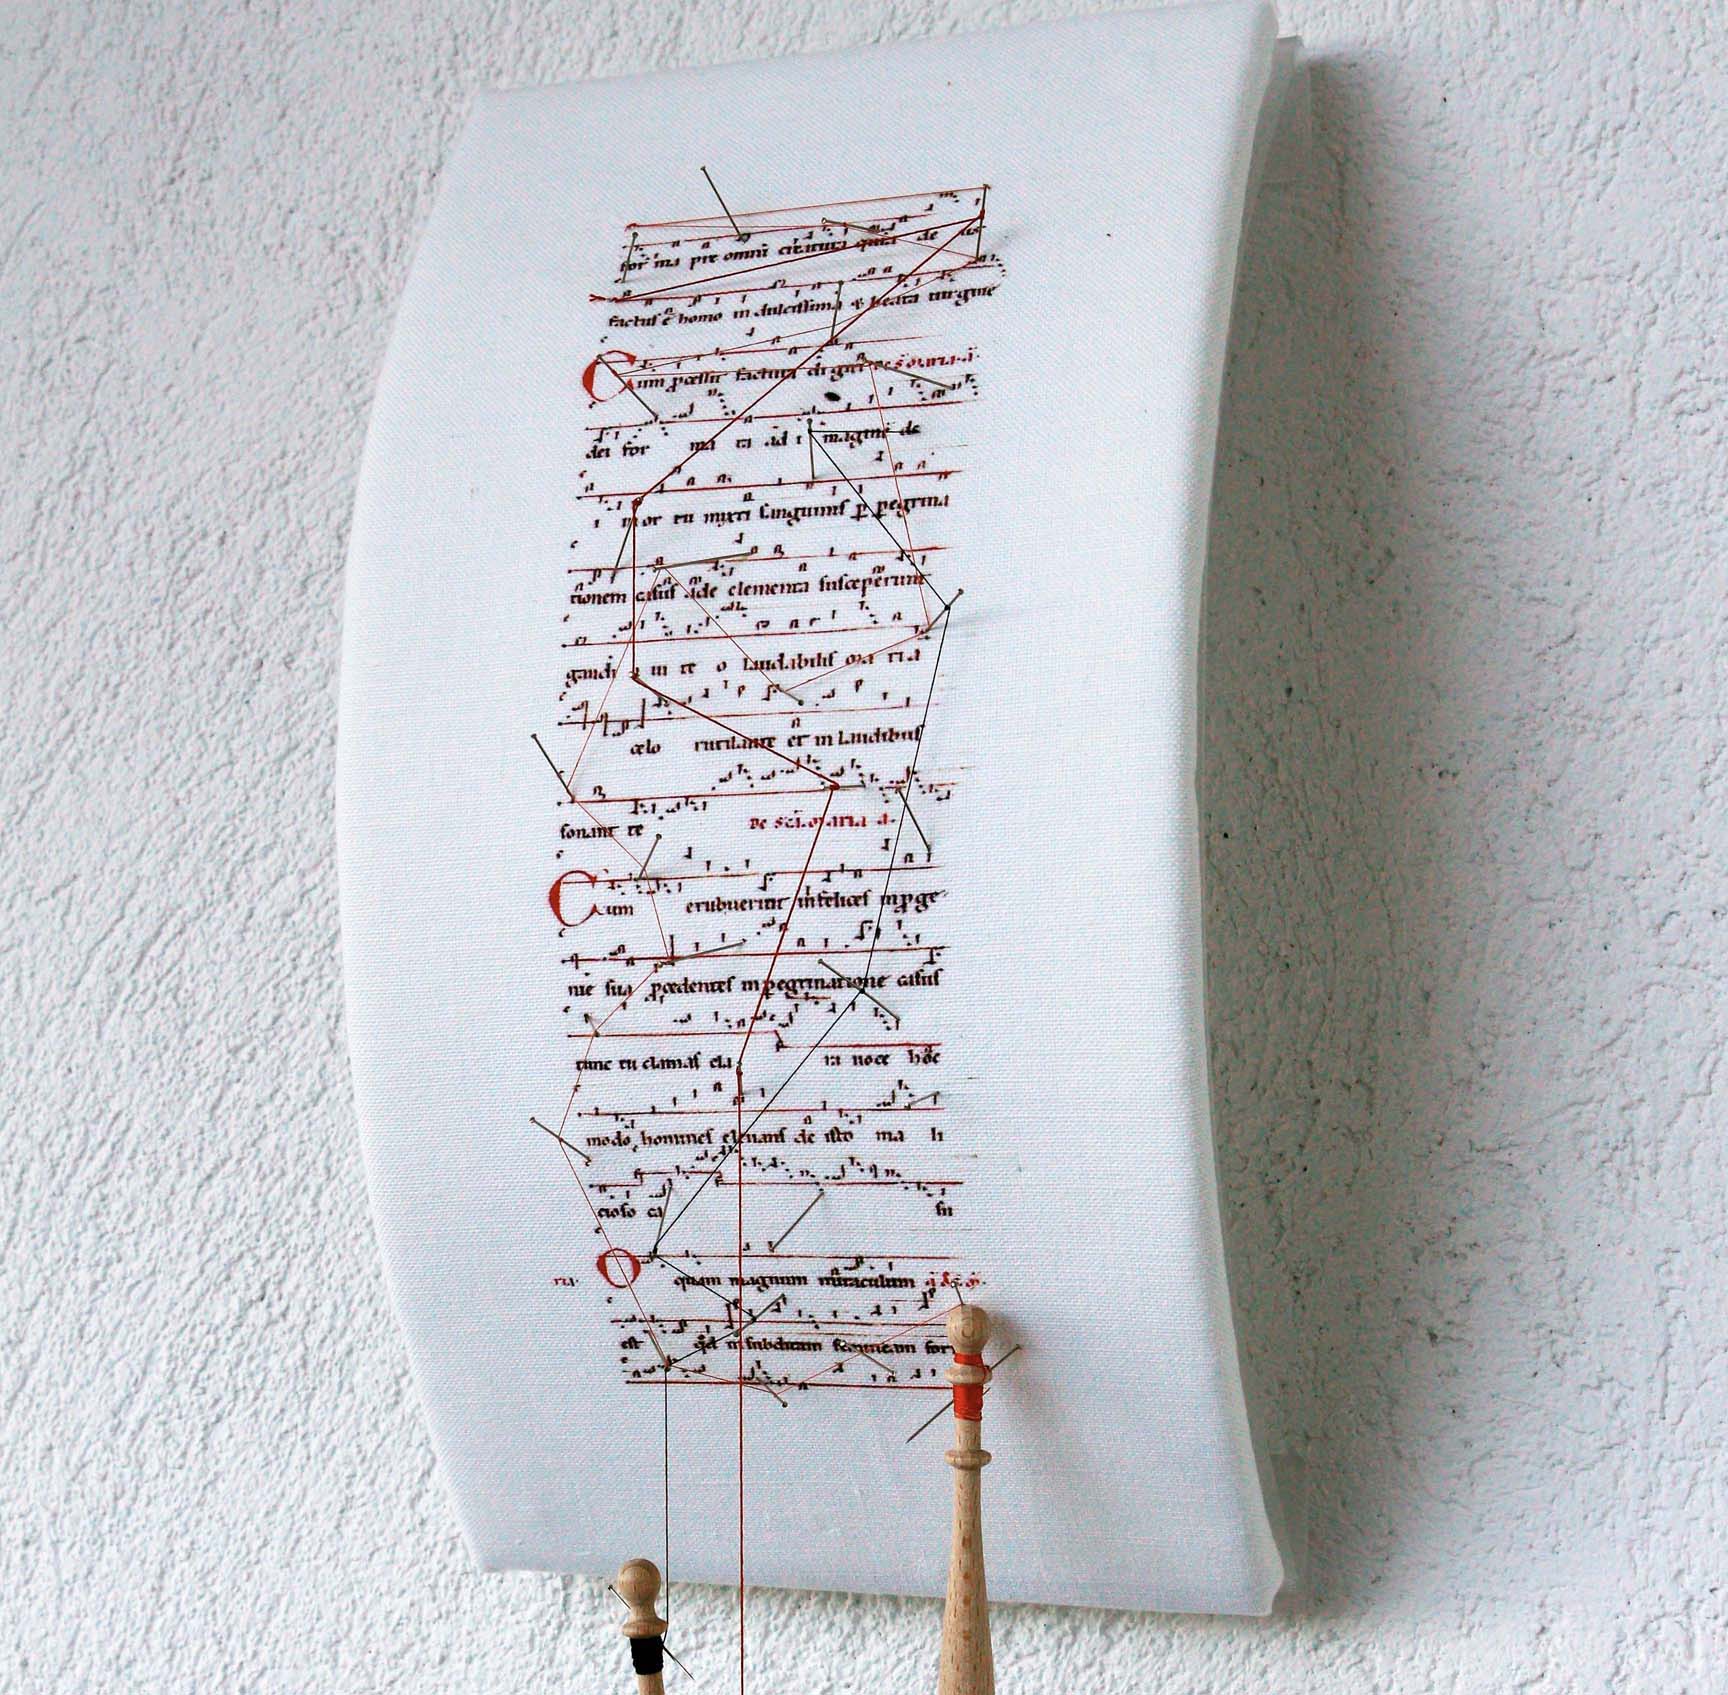 for ma pre omni creatura quia de us
factus ē homo in dulcissima & beata uirgine
Cum pcessit factura digiti de sc̄a maria. a.
dei for ma ta ad i magine de
i in or tu mixti sanguinis p pegrina
tionem casus ade elementa susceperunt
gaudi in te o laudabilis ma ria
celo rutilante et in laudibus
sonant te de sc̄a maria a.
Cum erubuerint infelices in pge
nie sua pcedentes in pegrinatione casus
tunc tu clamas cla ra uoce hoc
modo homines eleuans de isto ma li
cioso ca su
ria. O quam magnum miraculum
est qd in subditam femineam for